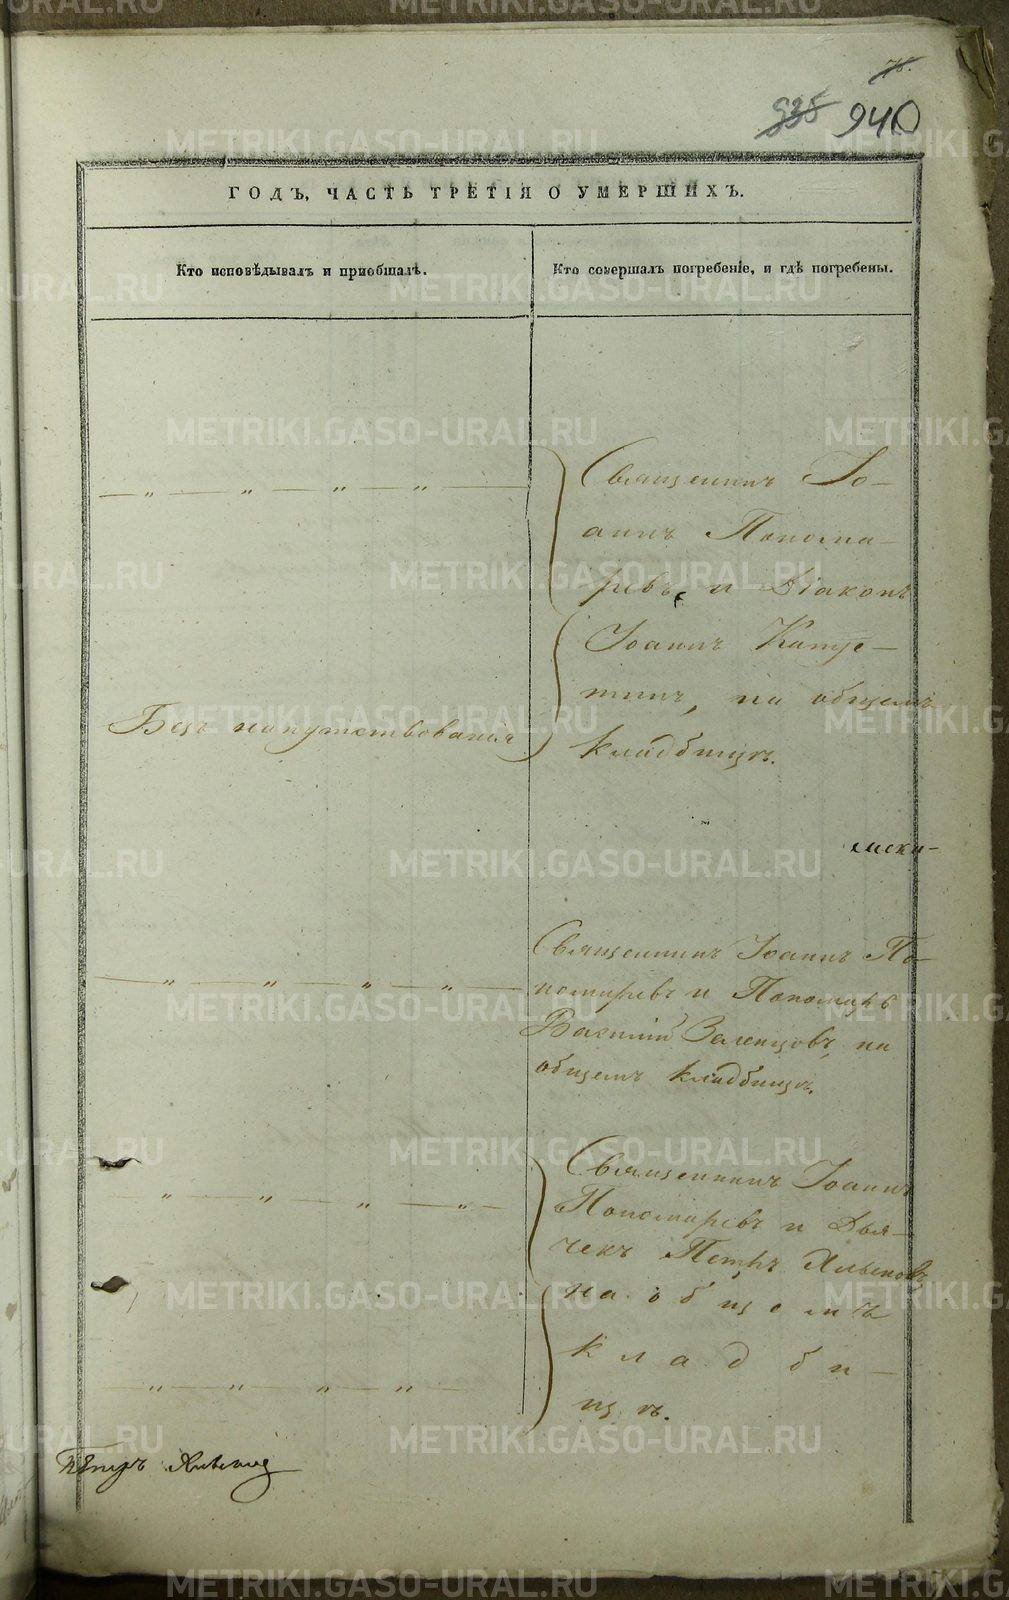 78.
935 940
ГОДЪ, ЧАСТЬ ТРЕТІЯ О УМЕРШИХЪ.
Кто исповѣдывалъ и пріобщалъ.
Кто совершалъ погребеніе, и гдѣ погребены.
— „ — „ — „ — „ —
Священникъ Іо-
аннъ Понома-
ревъ и Діаконъ
Іоаннъ
на общемъ
кладбищѣ.
Безъ напутствованія
Священникъ Іоаннъ По-
номаревъ и Пономарь
Василій на
общемъ кладбищѣ.
— „ — „ — „ — „ —
Священникъ Іоаннъ
Пономаревъ и Дья-
чекъ Петръ
на общемъ
кладби-
щѣ.
— „ — „ — „ — „ —
— „ — „ — „ — „ —
Петръ
METRIKI.GASO-URAL.RU